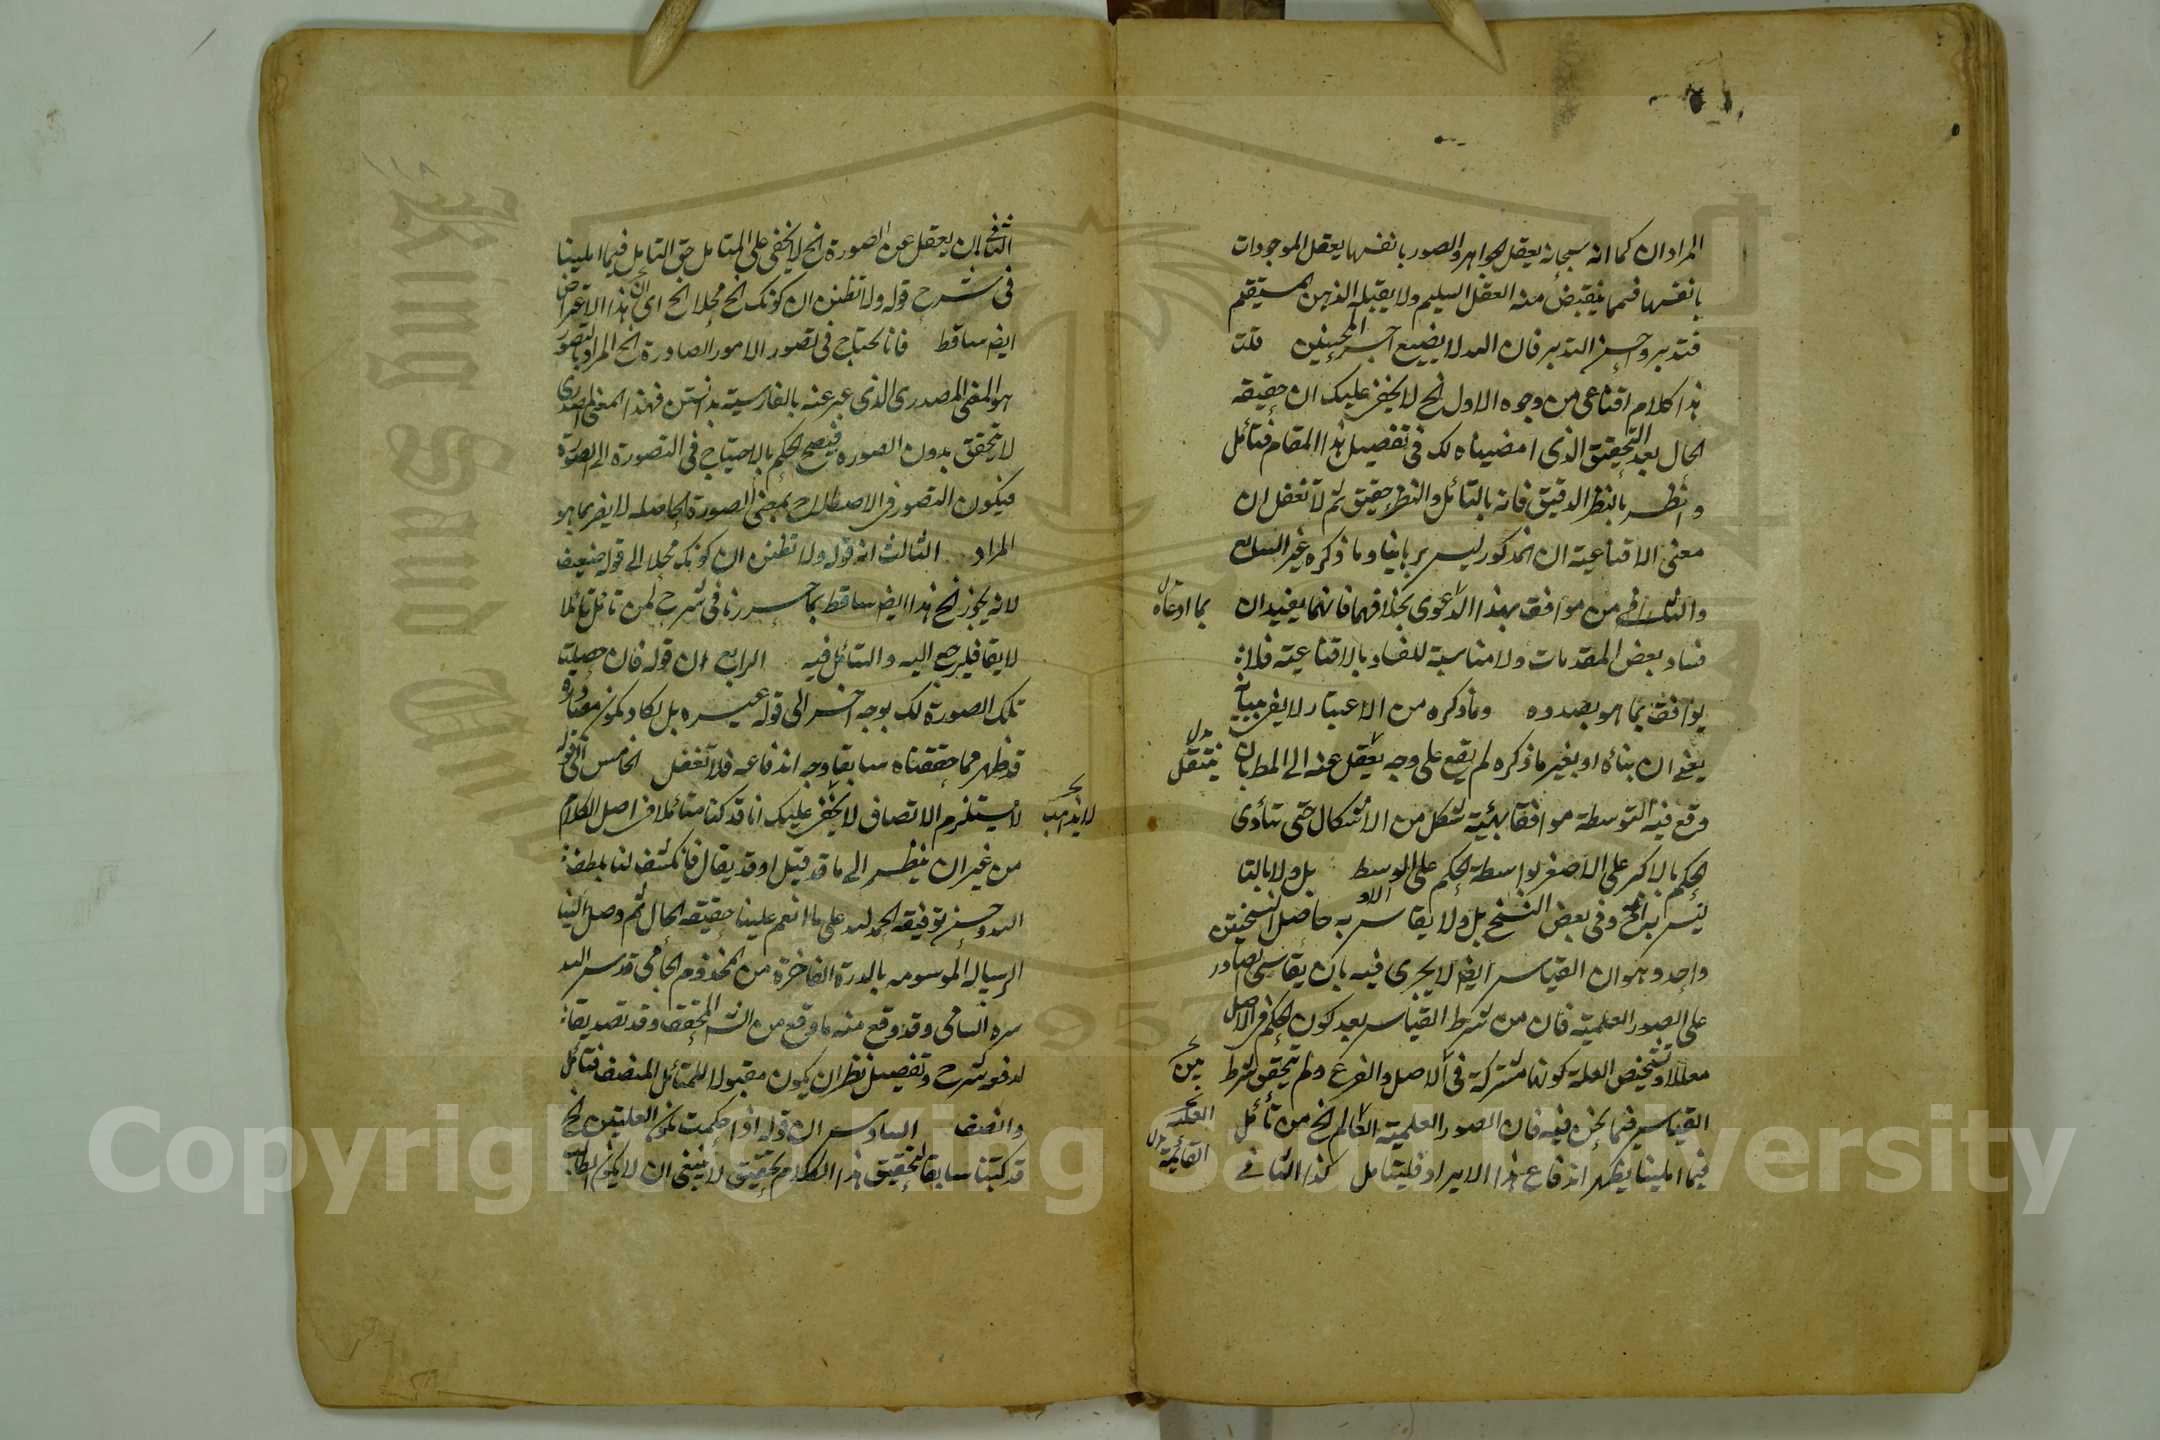 المراد ان كما انه سبحانه يعقل الجواهر والصور بانفسها يعقل الموجودات
بانفسها فمما ينقبض منه العقل السليم ولا يقبله الذهن المستقيم
فتدبر واحسن التدبر فان الله لا يضيع اجر المحسنين قلت
هذا كلام اقناعى من وجوه الاول الخ لا يخفى عليك ان حقيقة
الحال بعد التحقيق الذى امضيناه لك فى تفصيل هذا المقام فتأمل
وانظر بالنظر الدقيق فانه بالتأمل والنظر حقيق ثم لا تغفل ان
معنى الاقناعية ان المذكور ليس برهانيا وما ذكره غير السابع
والتاسع من موافق بهذا الدعوى بخلافهما فانهما يفيدان
بما ادعاه
فساد بعض المقدمات ولا مناسبة للفساد بالاقناعية فلا
يوافق بما هو بصدده وما ذكره من الاعتبار لا يفى
يعنى ان بناءه او بغير ما ذكره لم يقع على وجه يعقل عنه الى المط بان
ينتقل
وقع فيه التوسطة موافقا بهئية شكل من الاشكال حتى يتأدى
الحكم بالاكبر على الاصغر بواسطة الحكم على الاوسط بل ولا بالقيا
ليس الخ وفى بعض النسخ بل ولا بقياس به حاصل النسختين
واحد وهو ان القياس ايض لا يجرى فيه بان يقاس الصادر
على الصور العلمية فان من شرط القياس بعد كون الحكم فى الاصل
معللا وتشخيص العلة كونها مشتركة فى الاصل والفرع ولم يتحقق شرط
بين
القياس فيما نحن فيه فان الصور العلمية العالم الخ من تأمل
العلمية
القائمة
فيما املينا يظهر اندفاع هذا الايراد فليتأمل كذا الثانى
الثانى ان يعقل عن الصورة الخ لا يخفى على المتامل حق التامل فيما املينا
فى شرح قوله ولا تظنن ان كونك الخ محلا الخ اى ان هذا الاعتراض
ايض ساقط فانا نحتاج فى تصور الامور الصادرة الخ المراد بالتصور
هو المعنى المصدرى الذى عبر عنه بالفارسية بدانستن فهذا المعنى المصدرى
لا يتحقق بدون الصورة فيصح الحكم بالاحتياج فى التصورة الى الصورة
فيكون التصور فى الاصطلاح بمعنى الصورة الحاصلة لا يضر بما هو
المراد الثالث ان قوله ولا تظنن ان كونك محلا الى قوله ضعيف
لانه يجوز الخ هذا ايض ساقط بما حررنا فى شرح لمن تامل تاملا
لايقا فليرجع اليه والتأمل فيه الرابع ان قوله فان حصلت
تلك الصورة لك بوجه اخر الى قوله غيره بل يكاد يكون
قد ظهر مما حققناه سابقا وجه اندفاعه فلا تغفل الخامس ان قوله
لا يستلزم الاتصاف لا يخفى عليك انا قد كنا متأملا فى اصل الكلام
لا يذهب
من غير ان ينظر الى ما قد قيل او قد يقال فانكشف لنا بلطف
الله وحسن توفيقه الحمد لله على ما انعم علينا حقيقة الحال ثم وصل الينا
الرسالة الموسومه بالدرة الفاخرة من المخدوم الجامى قدس الله
سره السامى وقد وقع منه ما وقع من الش المحقق وقد تصديقا
لدفعه بشرح وتفصيل نظر ان يكون مقبولا للمتأمل المنصف فتامل
وانصف السادس ان قوله اذا حكمت بكون العلتين الخ
قد كتبنا سابقا لتحقيق هذا الكلام تحقيق لا ينبغى ان لا يكون
King Saud University
1957
Copyright © King Saud University